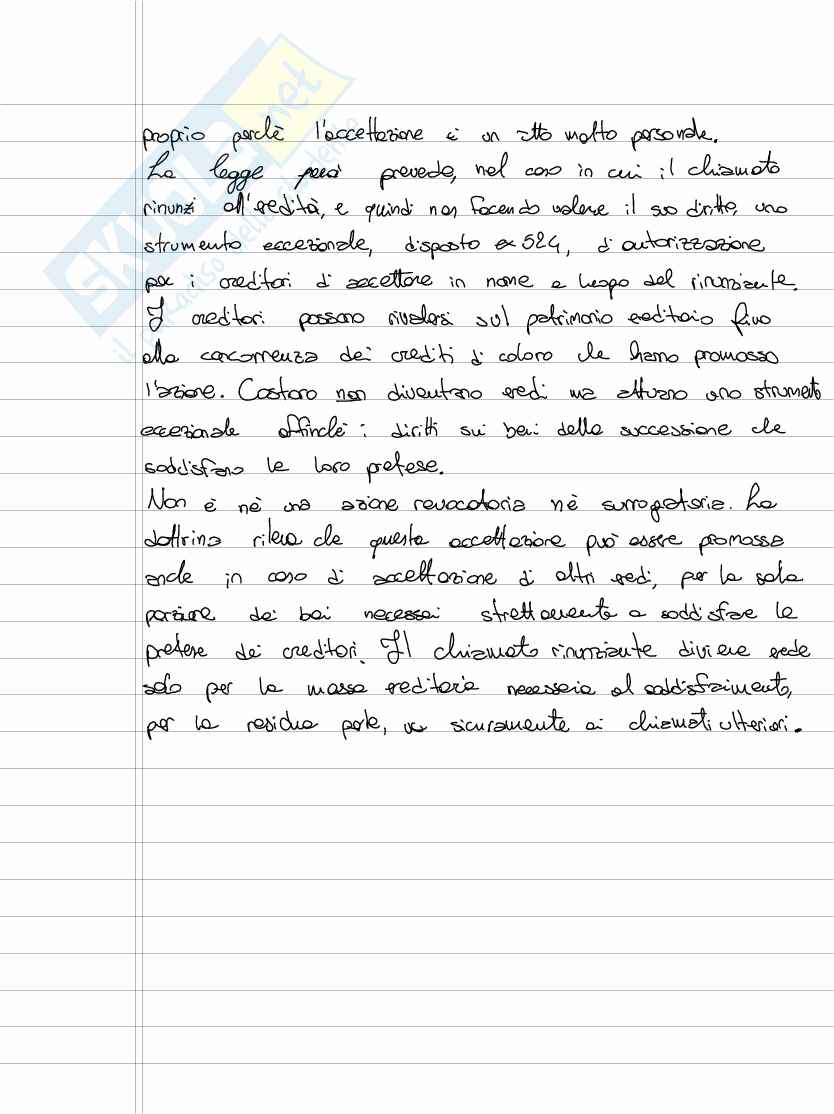 SKUOLA.net
il paradiso dello studente
proprio perchè l'accettazione è un atto molto personale.
La legge però prevede, nel caso in cui il chiamato
rinunzi all'eredità, e quindi non facendo valere il suo diritto, uno
strumento eccezionale, disposto ex 524, di autorizzazione
per i creditori di accettare in nome e luogo del rinunziante.
I creditori possono rivalersi sul patrimonio ereditario fino
alla concorrenza dei crediti di coloro che hanno promosso
l'azione. Costoro non diventano eredi ma attuano uno strumento
eccezionale affinchè i diritti sui beni della successione che
soddisfano le loro pretese.
Non è nè una azione revocatoria nè surrogatoria. La
dottrina rileva che questa accettazione può essere promossa
anche in caso di accettazione di altri eredi, per la sola
porzione dei beni necessari strettamente a soddisfare le
pretese dei creditori. Il chiamato rinunziante diviene erede
solo per la massa ereditaria necessaria al soddisfacimento,
per la residua parte, va sicuramente ai chiamati ulteriori.